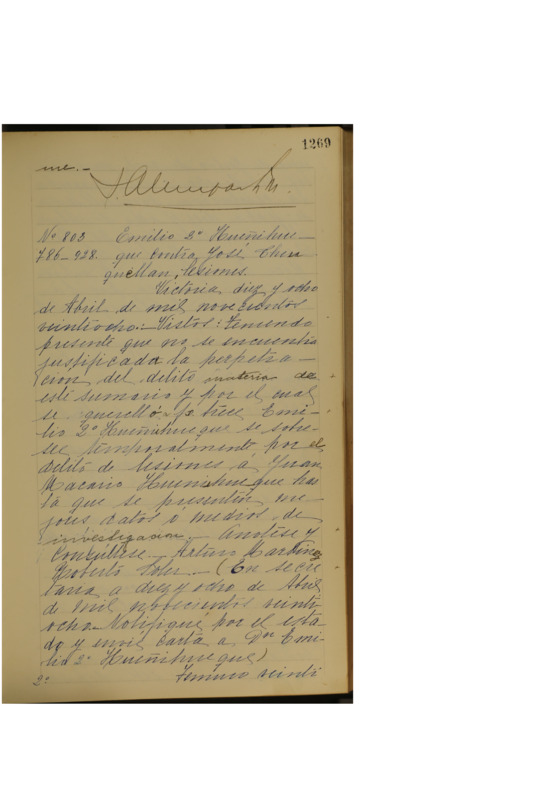 1269
me.-
Nº 803 Emilio 2º Hueñihue-
786-928. que contra José Chen
quellan, lesiones.
Victoria, diez y ocho
de Abril de mil novecientos
veintiocho:- Vistos: Teniendo
presente que no se encuentra
justificada la perpetra-
cion del delito materia de
este sumario y por el cual
se querelló fs trece Emi-
lio 2º Hueñihueque se sobre-
see temporalmente por el
delito de lesiones á Juan
Macario Hueñihueque has
ta que se presenten me
jores datos ó medios de
investigacion. Anótese y
Consúltese.- Arturo Martinez
Roberto Soler.- (En secre
taria a diez y ocho de Abril
de mil novecientos veinti
ocho. Notifiqué por el esta-
do y envié carta a Don Emi-
lio 2º Hueñihueque)
2º Temuco veinti